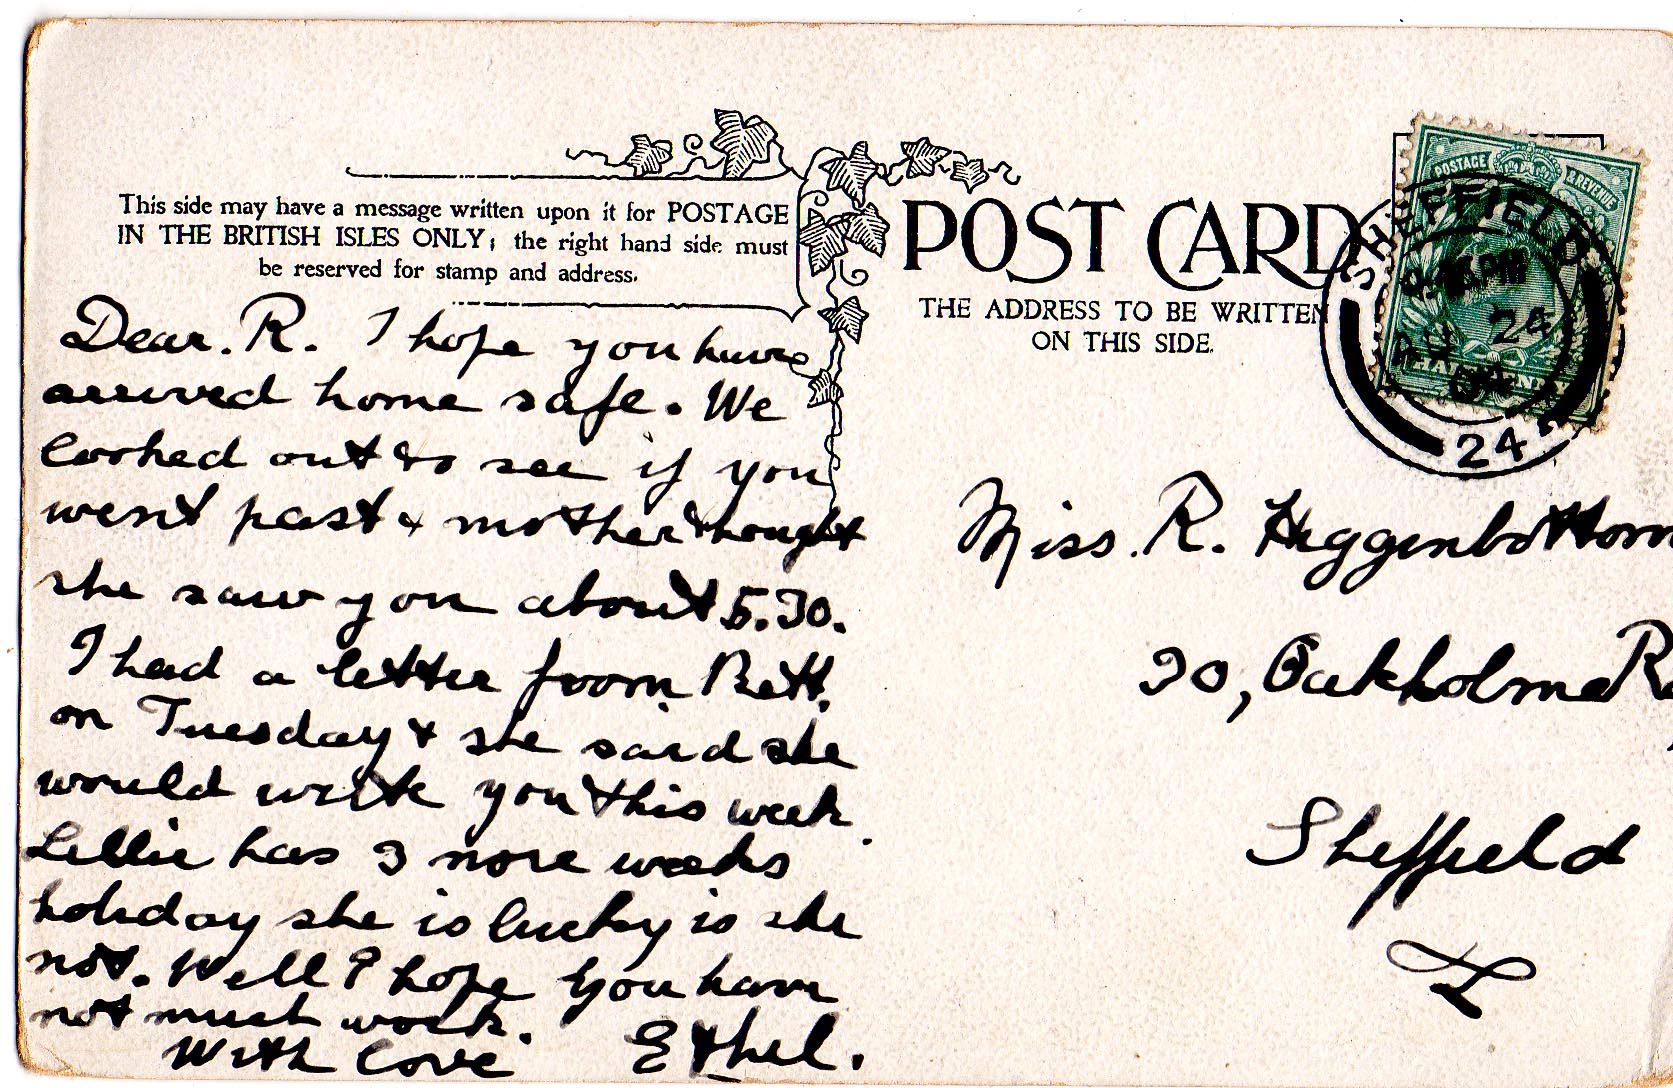 This side may have a message written upon it for POSTAGE
IN THE BRITISH ISLES ONLY; the right hand side must
be reserved for stamp and address.
POST CARD
THE ADDRESS TO BE WRITTEN
ON THIS SIDE.
POSTAGE & REVENUE
HALFPENNY
SHEFFIELD
24
24
Dear. R. I hope you have
arrived home safe. We
looked out to see if you
went past & mother thought
she saw you about 5.30.
I had a letter from Bett.
on Tuesday & she said she
would write you this week.
Lillie has 3 more weeks
holiday she is lucky is she
not. Well I hope you have
not much work.
With Love Ethel.
Miss. R. Higgenbottom
30, Oakholme R
Sheffield